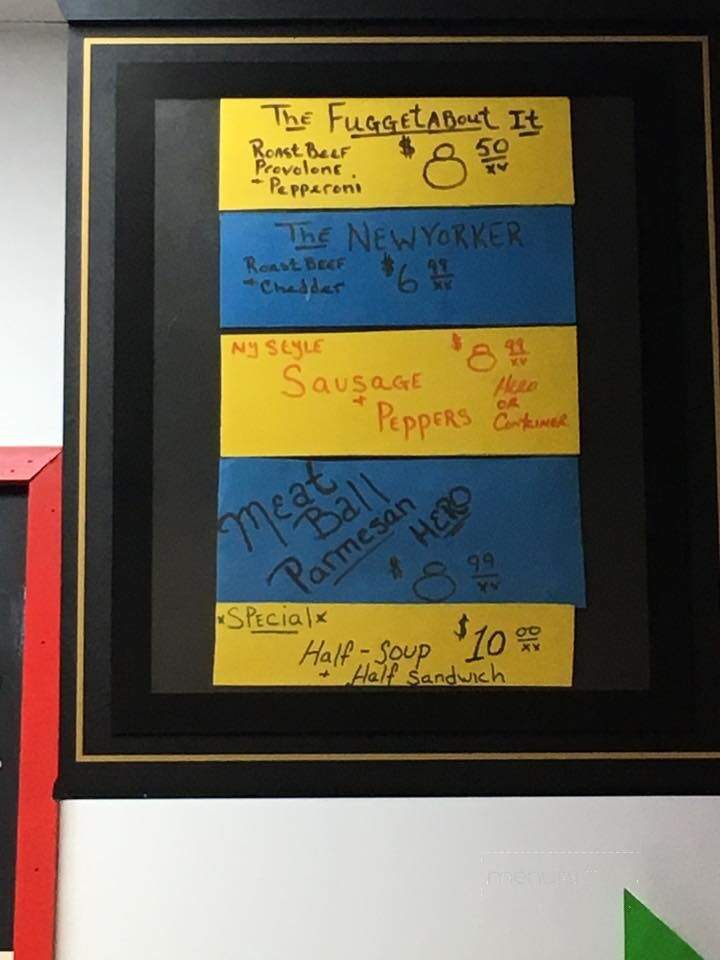 The FUGGETABOUt It
ROAST BEEF $8 50/xx
Provolone
+ Pepperoni
The NEWYORKER
ROAST BEEF $6 99/xx
+ Chedder
NY StYLE $8 99/xx
SAUSAGE Hero
+ OR
PEPPERS Container
Meat
Ball
Parmesan HERO
$8 99/xx
*SPecial* $10 00/xx
Half - Soup
+ Half Sandwich
menu